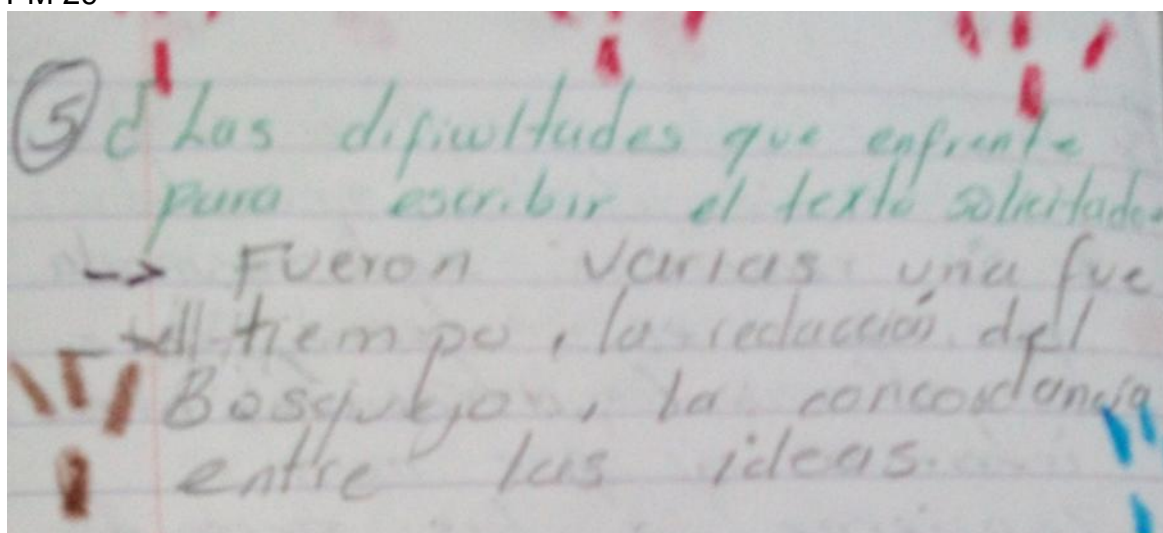 5 d Las dificultades que enfrente
para escribir el texto solicitado.
-> Fueron varias una fue
el tiempo, la redacción del
Bosquejo, la concordancia
entre las ideas.